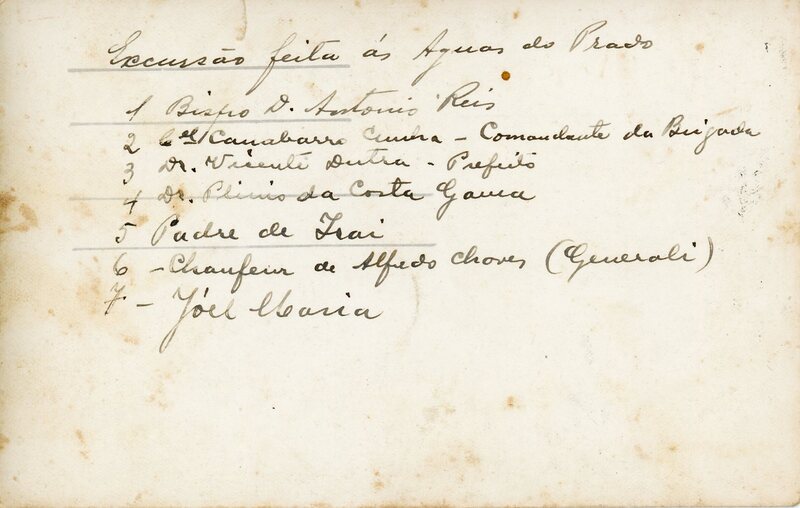 Excursão feita ás Aguas do Prado
1 Bispo D. Antonio Reis
2 Cel Canabarro Cunha - Comandante da Brigada
3 Dr. Vicente Dutra - Prefeito
4 Dr. Plinio da Costa Gama
5 Padre de Irai
6 - Chaufeur de Alfredo Chaves (Generali)
7 - Jóel Maria